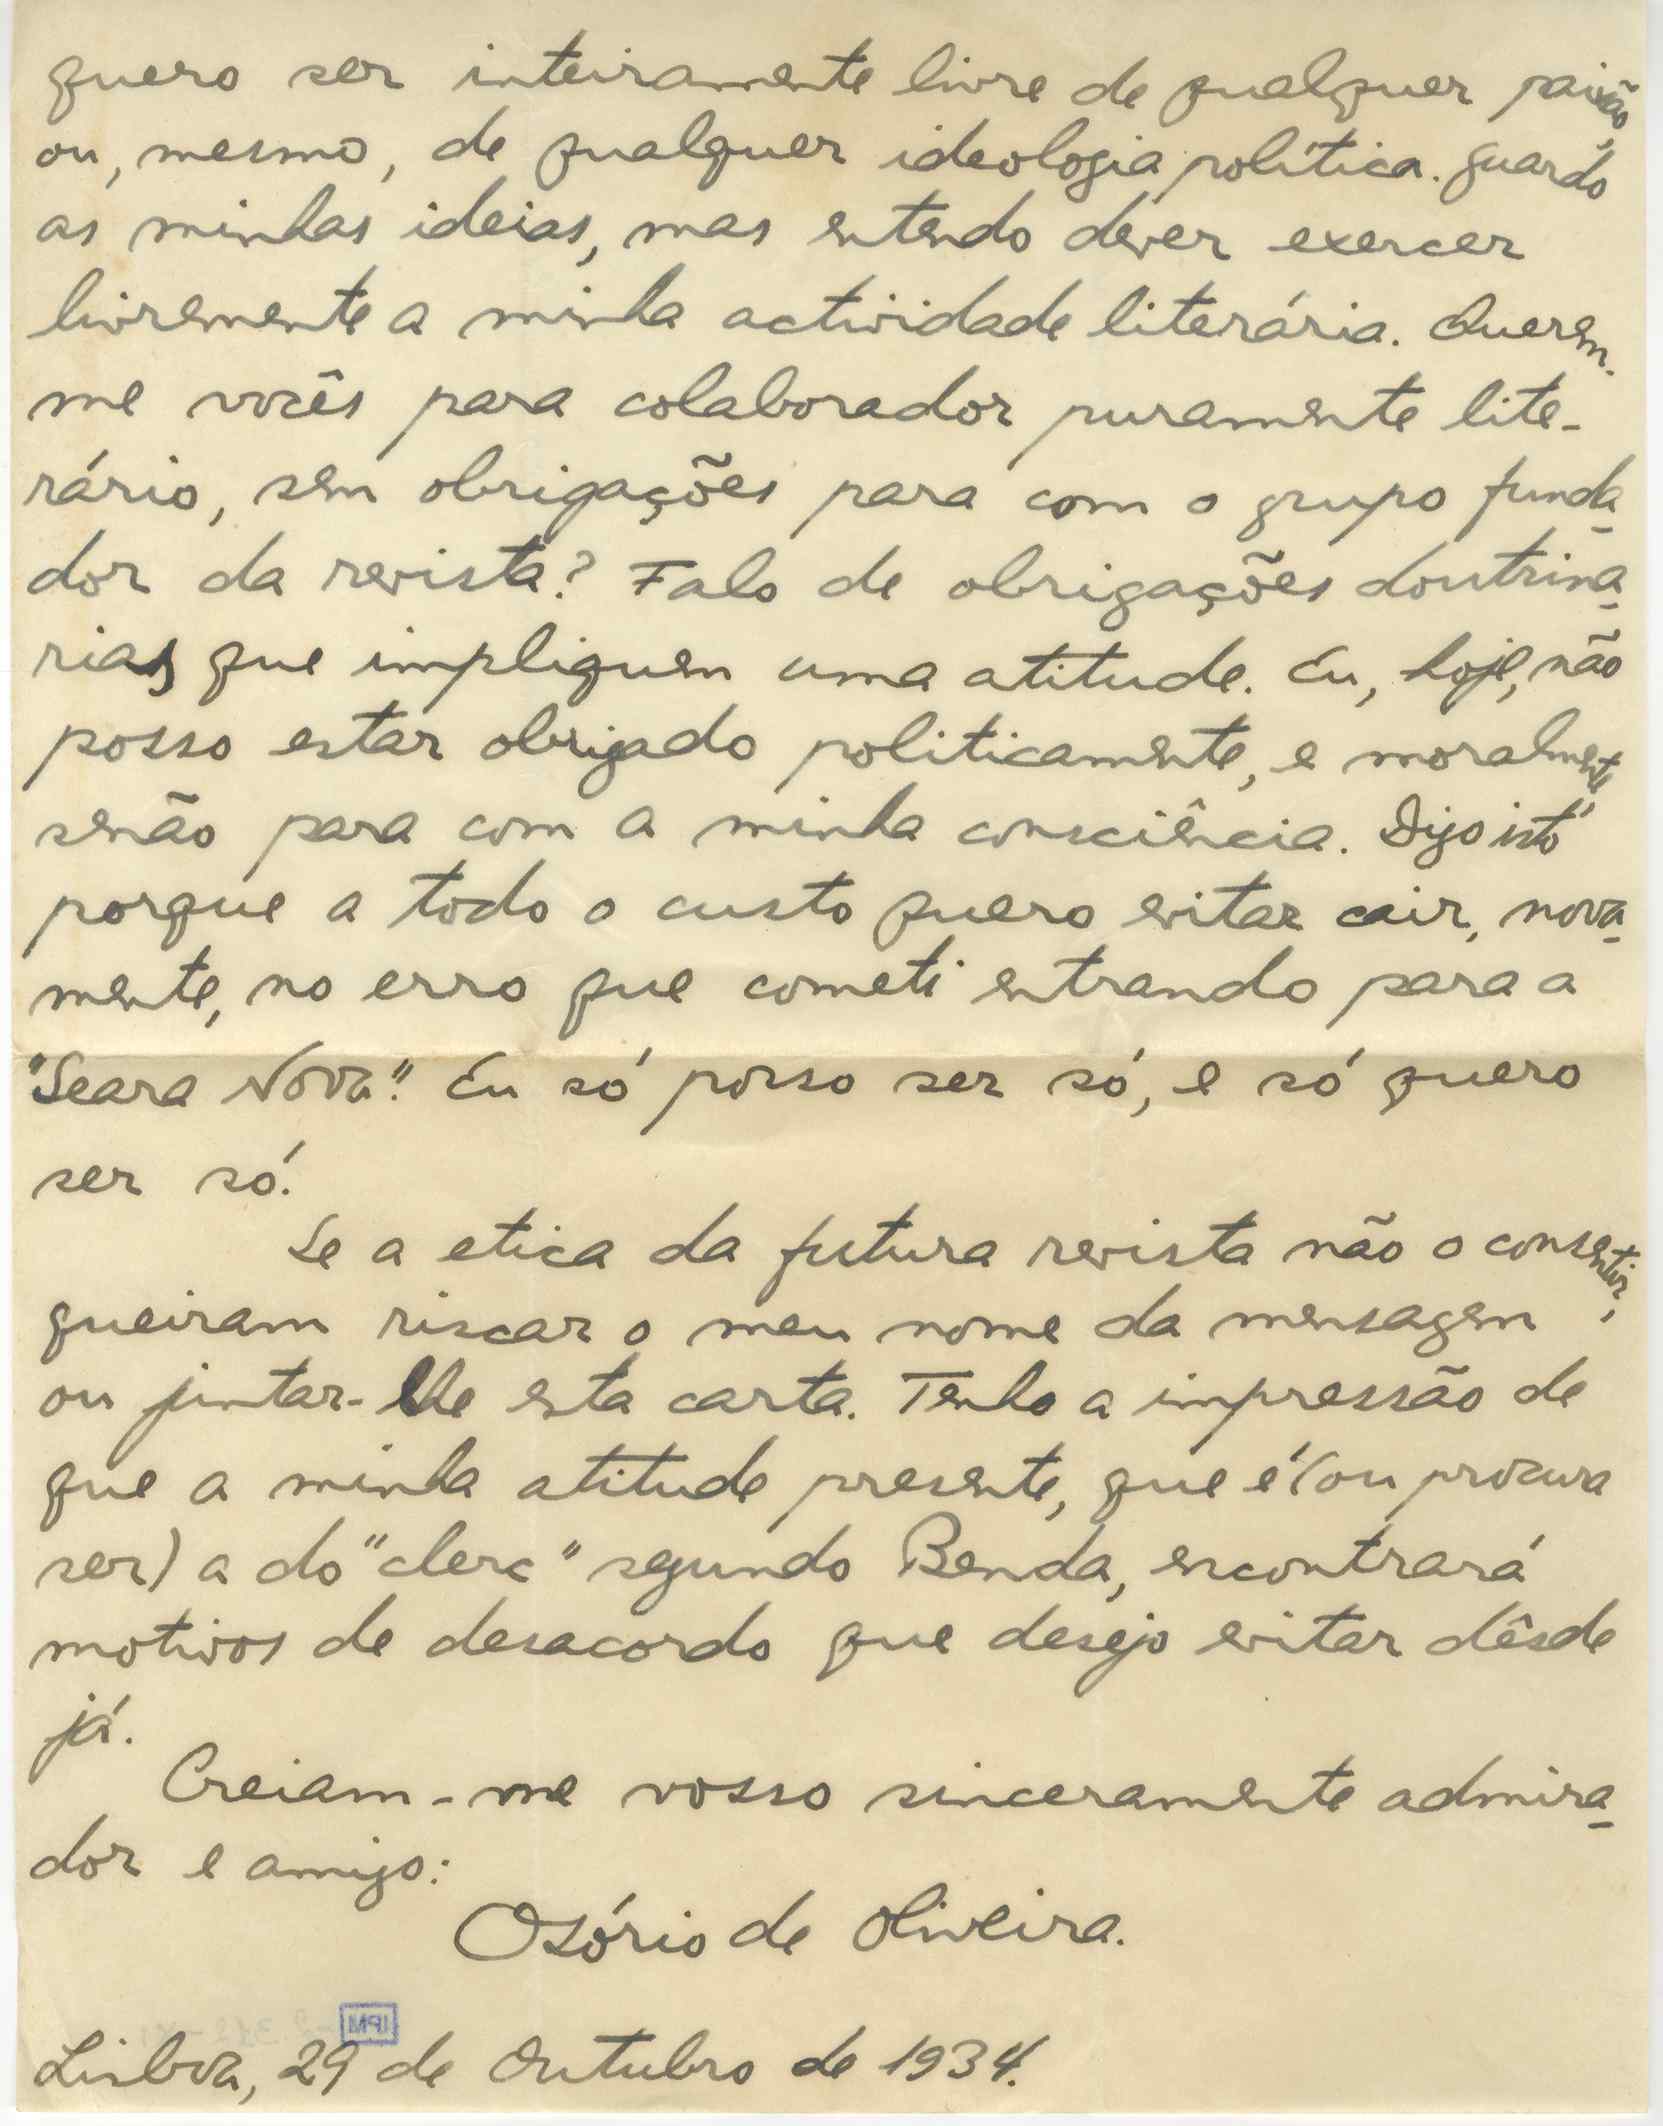 quero ser inteiramente livre de qualquer paixão,
ou, mesmo, de qualquer ideologia política. Guardo
as minhas ideias, mas entendo dever exercer
livremente a minha actividade literária. Querem-
me vocês para colaborador puramente lite-
rário, sem obrigações para com o grupo funda-
dor da revista? Falo de obrigações doutriná-
rias que impliquem uma atitude. Eu, hoje, não
posso estar obrigado politicamente, e moralmente
senão para com a minha consciência. Digo isto
porque a todo o custo quero evitar cair, nova-
mente, no erro que cometi entrando para a
"Seara Nova". Eu só posso ser só, e só quero
ser só.
Se a etica da futura revista não o consentir,
queiram riscar o meu nome da mensagem
ou juntar-lhe esta carta. Tenho a impressão de
que a minha atitude presente, que é (ou procura
ser) a do "clerc" segundo Benda, encontrará
motivos de desacordo que desejo evitar dêsde
já.
Creiam-me vosso sinceramente admira-
dor e amigo:
Osório de Oliveira.
IPM
Lisboa, 29 de Outubro de 1934.